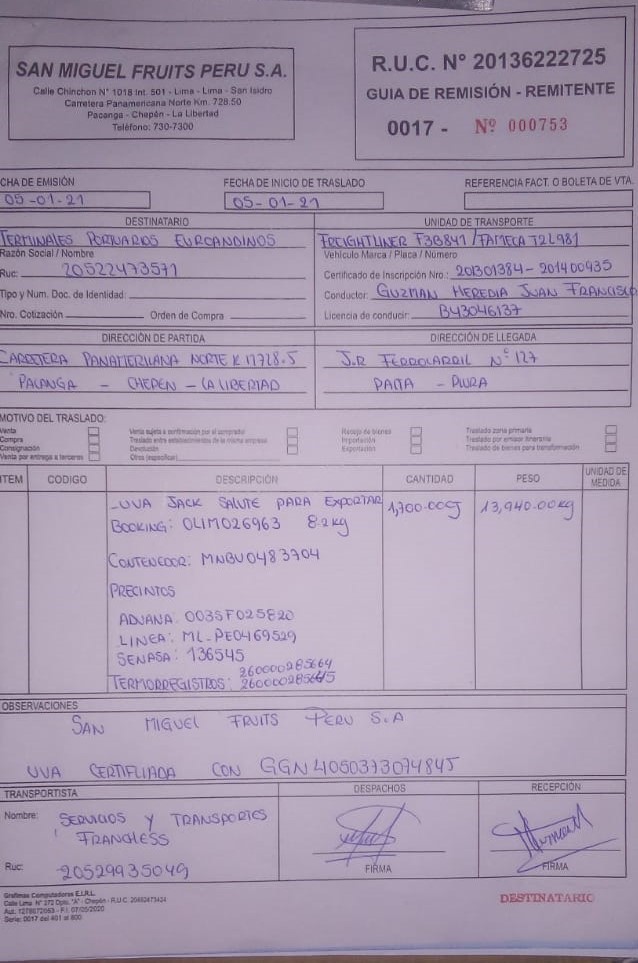 SAN MIGUEL FRUITS PERU S.A.
Calle Chinchon N° 1018 Int. 501 - Lima - Lima - San Isidro
Carretera Panamericana Norte Km. 728.50
Pacanga - Chepén - La Libertad
Teléfono: 730-7300
R.U.C. N° 20136222725
GUIA DE REMISIÓN - REMITENTE
0017 - Nº 000753
CHA DE EMISIÓN
05-01-21
FECHA DE INICIO DE TRASLADO
05-01-21
REFERENCIA FACT. O BOLETA DE VTA.
DESTINATARIO
TERMINALES PORTUARIOS EUROANDINOS
Razón Social / Nombre
Ruc: 20522473571
Tipo y Num. Doc. de Identidad:
Nro. Cotización Orden de Compra
UNIDAD DE TRANSPORTE
FREIGHTLINER F3G841 / FAMECA T2L981
Vehículo Marca / Placa / Número
Certificado de Inscripción Nro.: 201301384-201400435
Conductor: GUZMAN HEREDIA JUAN FRANCISCO
Licencia de conducir: B43046137
DIRECCIÓN DE PARTIDA
CARRETERA PANAMERICANA NORTE KM728.5
PACANGA - CHEPEN - LA LIBERTAD
DIRECCIÓN DE LLEGADA
J.R FERROCARRIL N° 127
PAITA - PIURA
MOTIVO DEL TRASLADO:
Venta
Compra
Consignación
Venta por entrega a terceros
Venta sujeta a confirmación por el comprador
Traslado entre establecimientos de la misma empresa
Devolución
Otros (especificar)
Recojo de bienes
Importación
Exportación
Traslado zona primaria
Traslado por emisor itinerante
Traslado de bienes para transformación
ITEM CODIGO DESCRIPCIÓN CANTIDAD PESO UNIDAD DE MEDIDA
-UVA JACK SALUTE PARA EXPORTAR 1,700.00CJ 13,940.00KG
BOOKING: 04IM026963 8.2KG
CONTENEDOR: MNBU0483704
PRECINTOS
ADUANA: 0035F025E20
LINEA: ML-PE0469529
SENASA: 136545
260000285664
TERMORREGISTROS: 260000285645
OBSERVACIONES
SAN MIGUEL FRUITS PERU S.A
UVA CERTIFICADA CON GGN 4050373074845
TRANSPORTISTA
Nombre: SERVICIOS Y TRANSPORTES
FRANCHESS
Ruc: 20529935049
DESPACHOS
FIRMA
RECEPCIÓN
FIRMA
Grafimas Computadoras E.I.R.L.
Calle Lima N° 272 Dpto. "A" - Chepén - R.U.C. 20482473424
Serie: 0017 del 401 al 800
DESTINATARIO